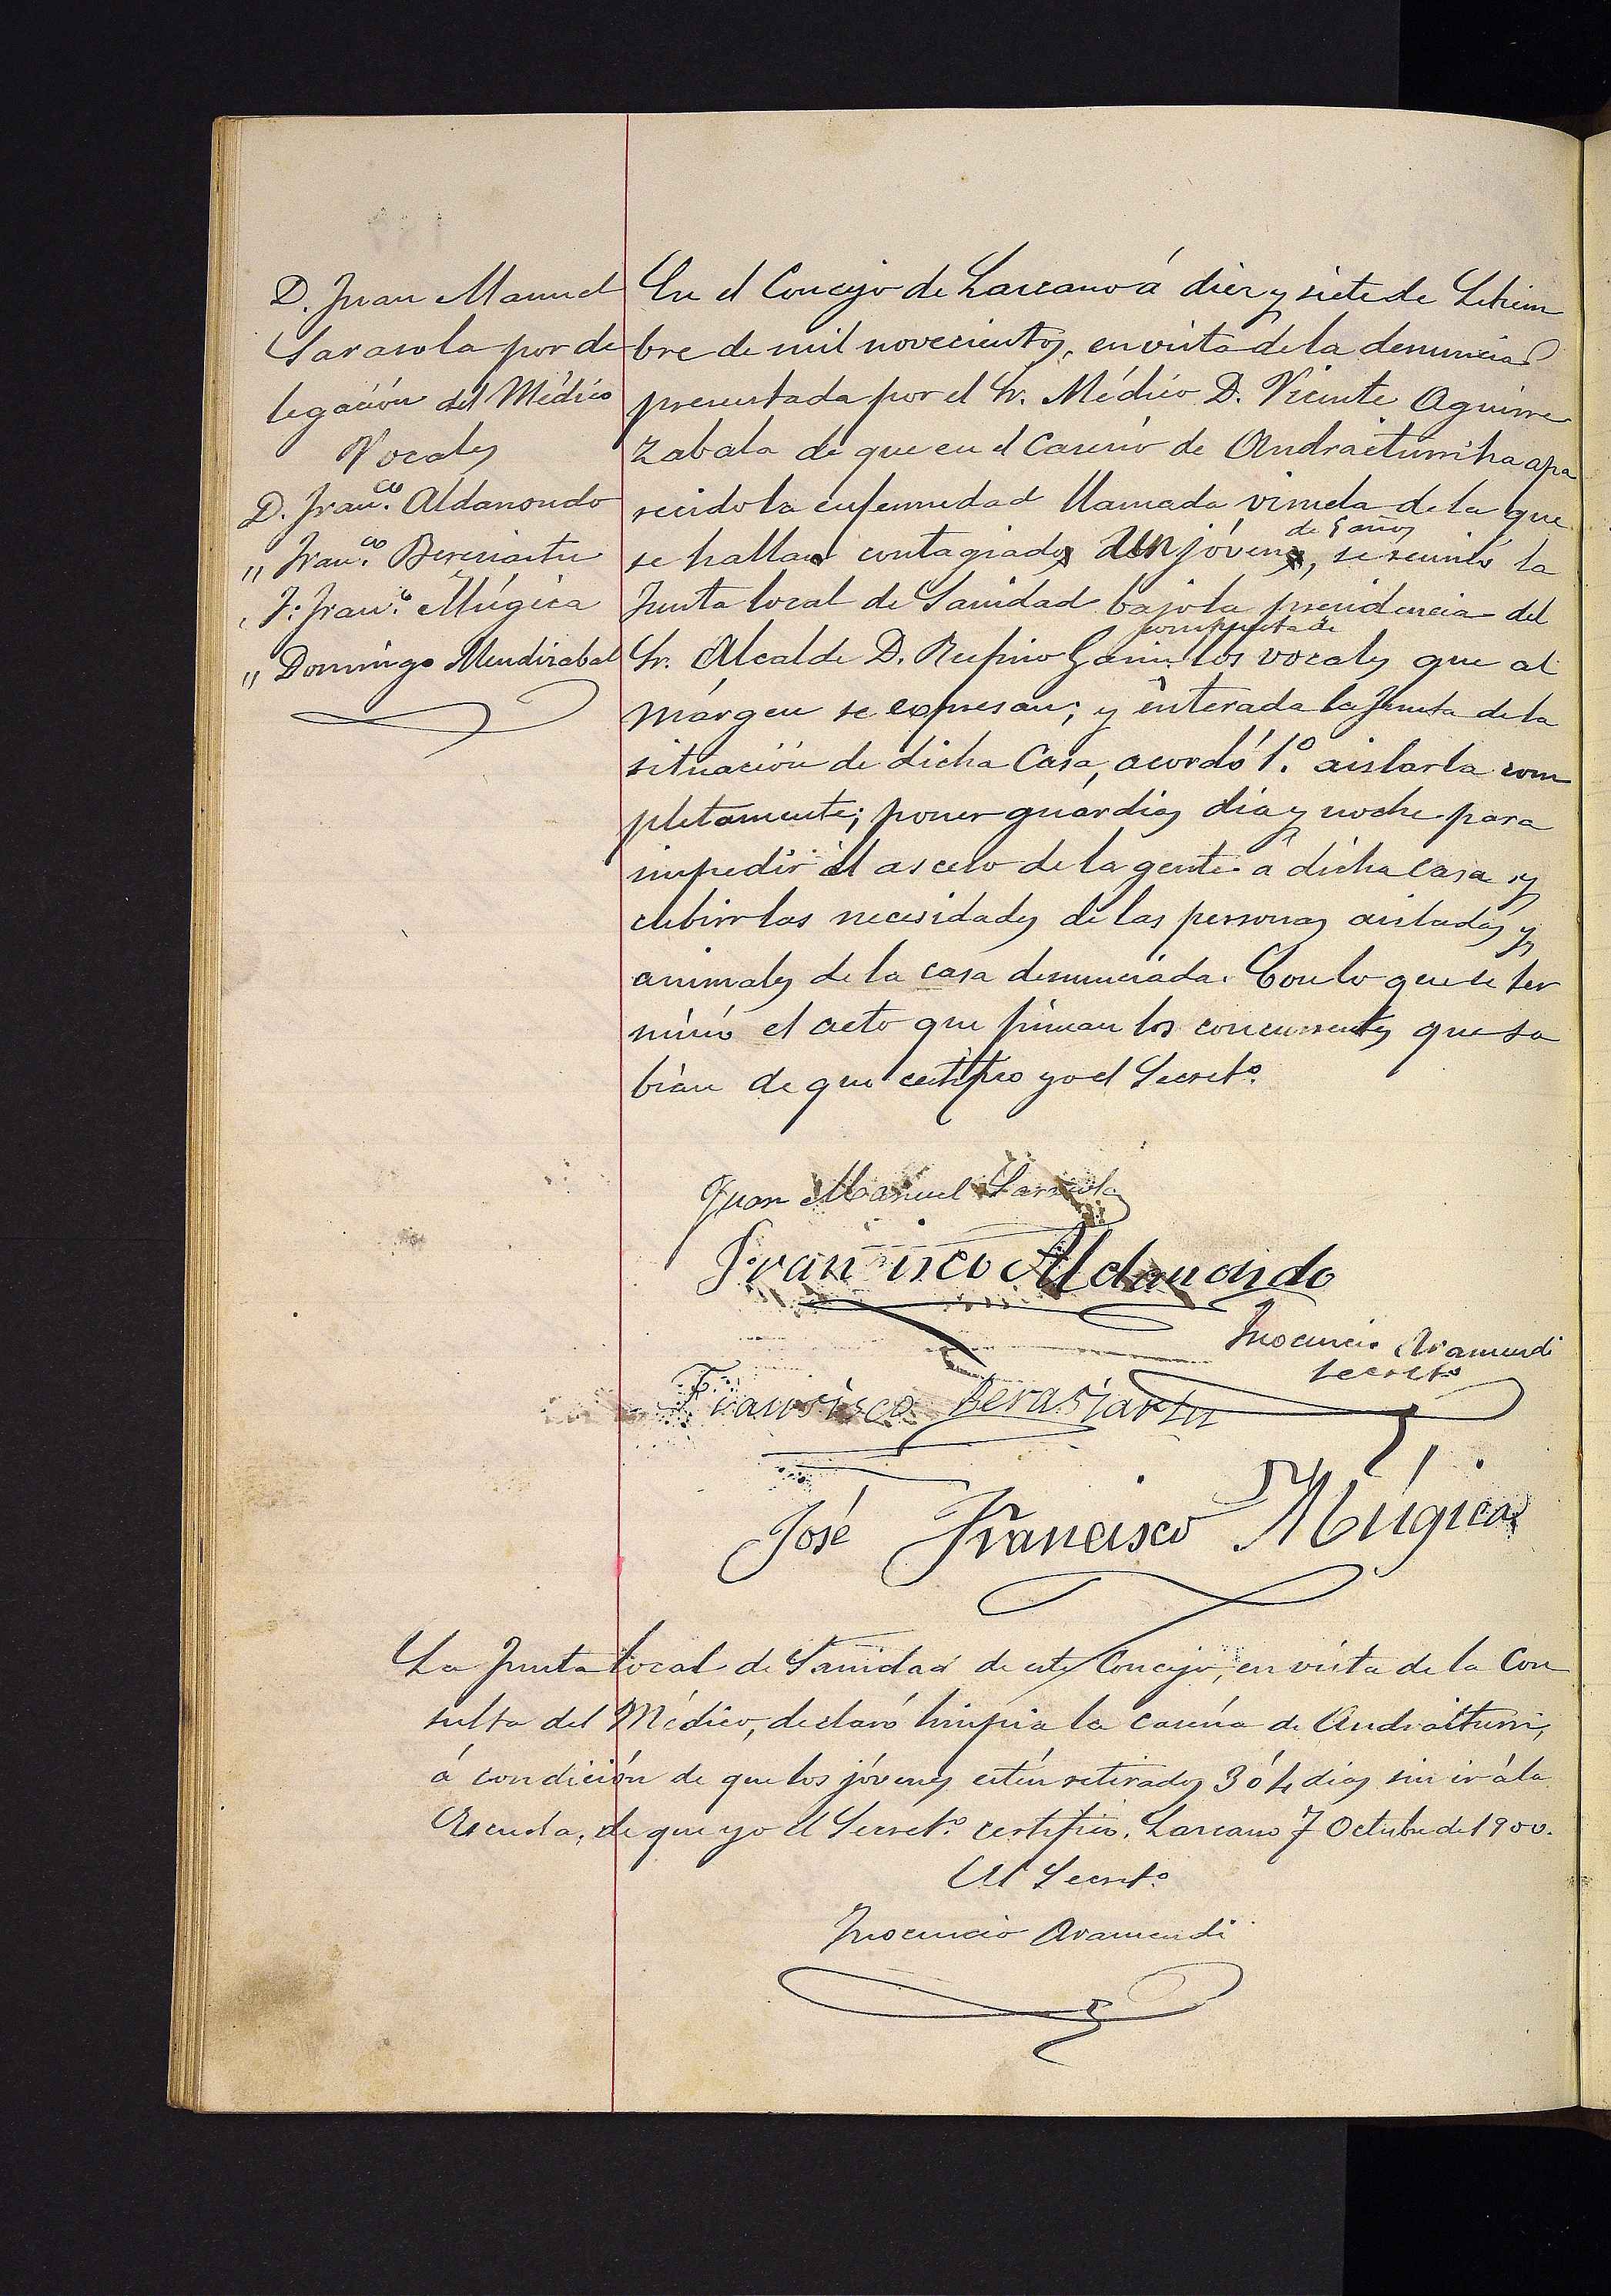 D. Juan Manuel
Sarasola por de
legación del Médico
Vocales
D. Franco. Aldanondo
" Franco. Beresiartu
" J. Franco. Múgica
" Domingo Mendizabal
En el Concejo de Lazcano á diez y siete de Setiem
bre de mil novecientos, en vista de la denuncia
presentada por el Sr. Médico D. Vicente Aguirre
zabala de que en el Caserío de Andraiturri ha apa
recido la enfermedad llamada viruela de la que
se halla contagiado un jóven de 9 años, se reunió la
Junta local de Sanidad bajo la presidencia del
Sr. Alcalde D. Rufino Garin compuesta de los vocales que al
márgen se expresan; y enterada la Junta de la
situación de dicha Casa, acordó 1.º aislarla com
pletamente; poner guardias dia y noche para
impedir el asceso de la gente á dicha casa y
cubrir las necesidades de las personas aisladas y
animales de la casa denunciada. Con lo que se ter
minó el acto que firman los concurrentes que sa
bían de que certifico yo el Secreto.
Juan Manuel Sarasola
Francisco Aldanondo
Inocencio Aramendi
Secreto
Fransisco Berasiartu
José Francisco Múgica
La Junta local de Sanidad de este Concejo, en vista de la Con
sulta del Médico, declaró limpia la casería de Andraiturri,
á condición de que los jóvenes estén retirados 3 ó 4 dias sin ir á la
Escuela, de que yo el Secreto. certifico. Lazcano 7 Octubre de 1900.
El Secreto
Inocencio Aramendi